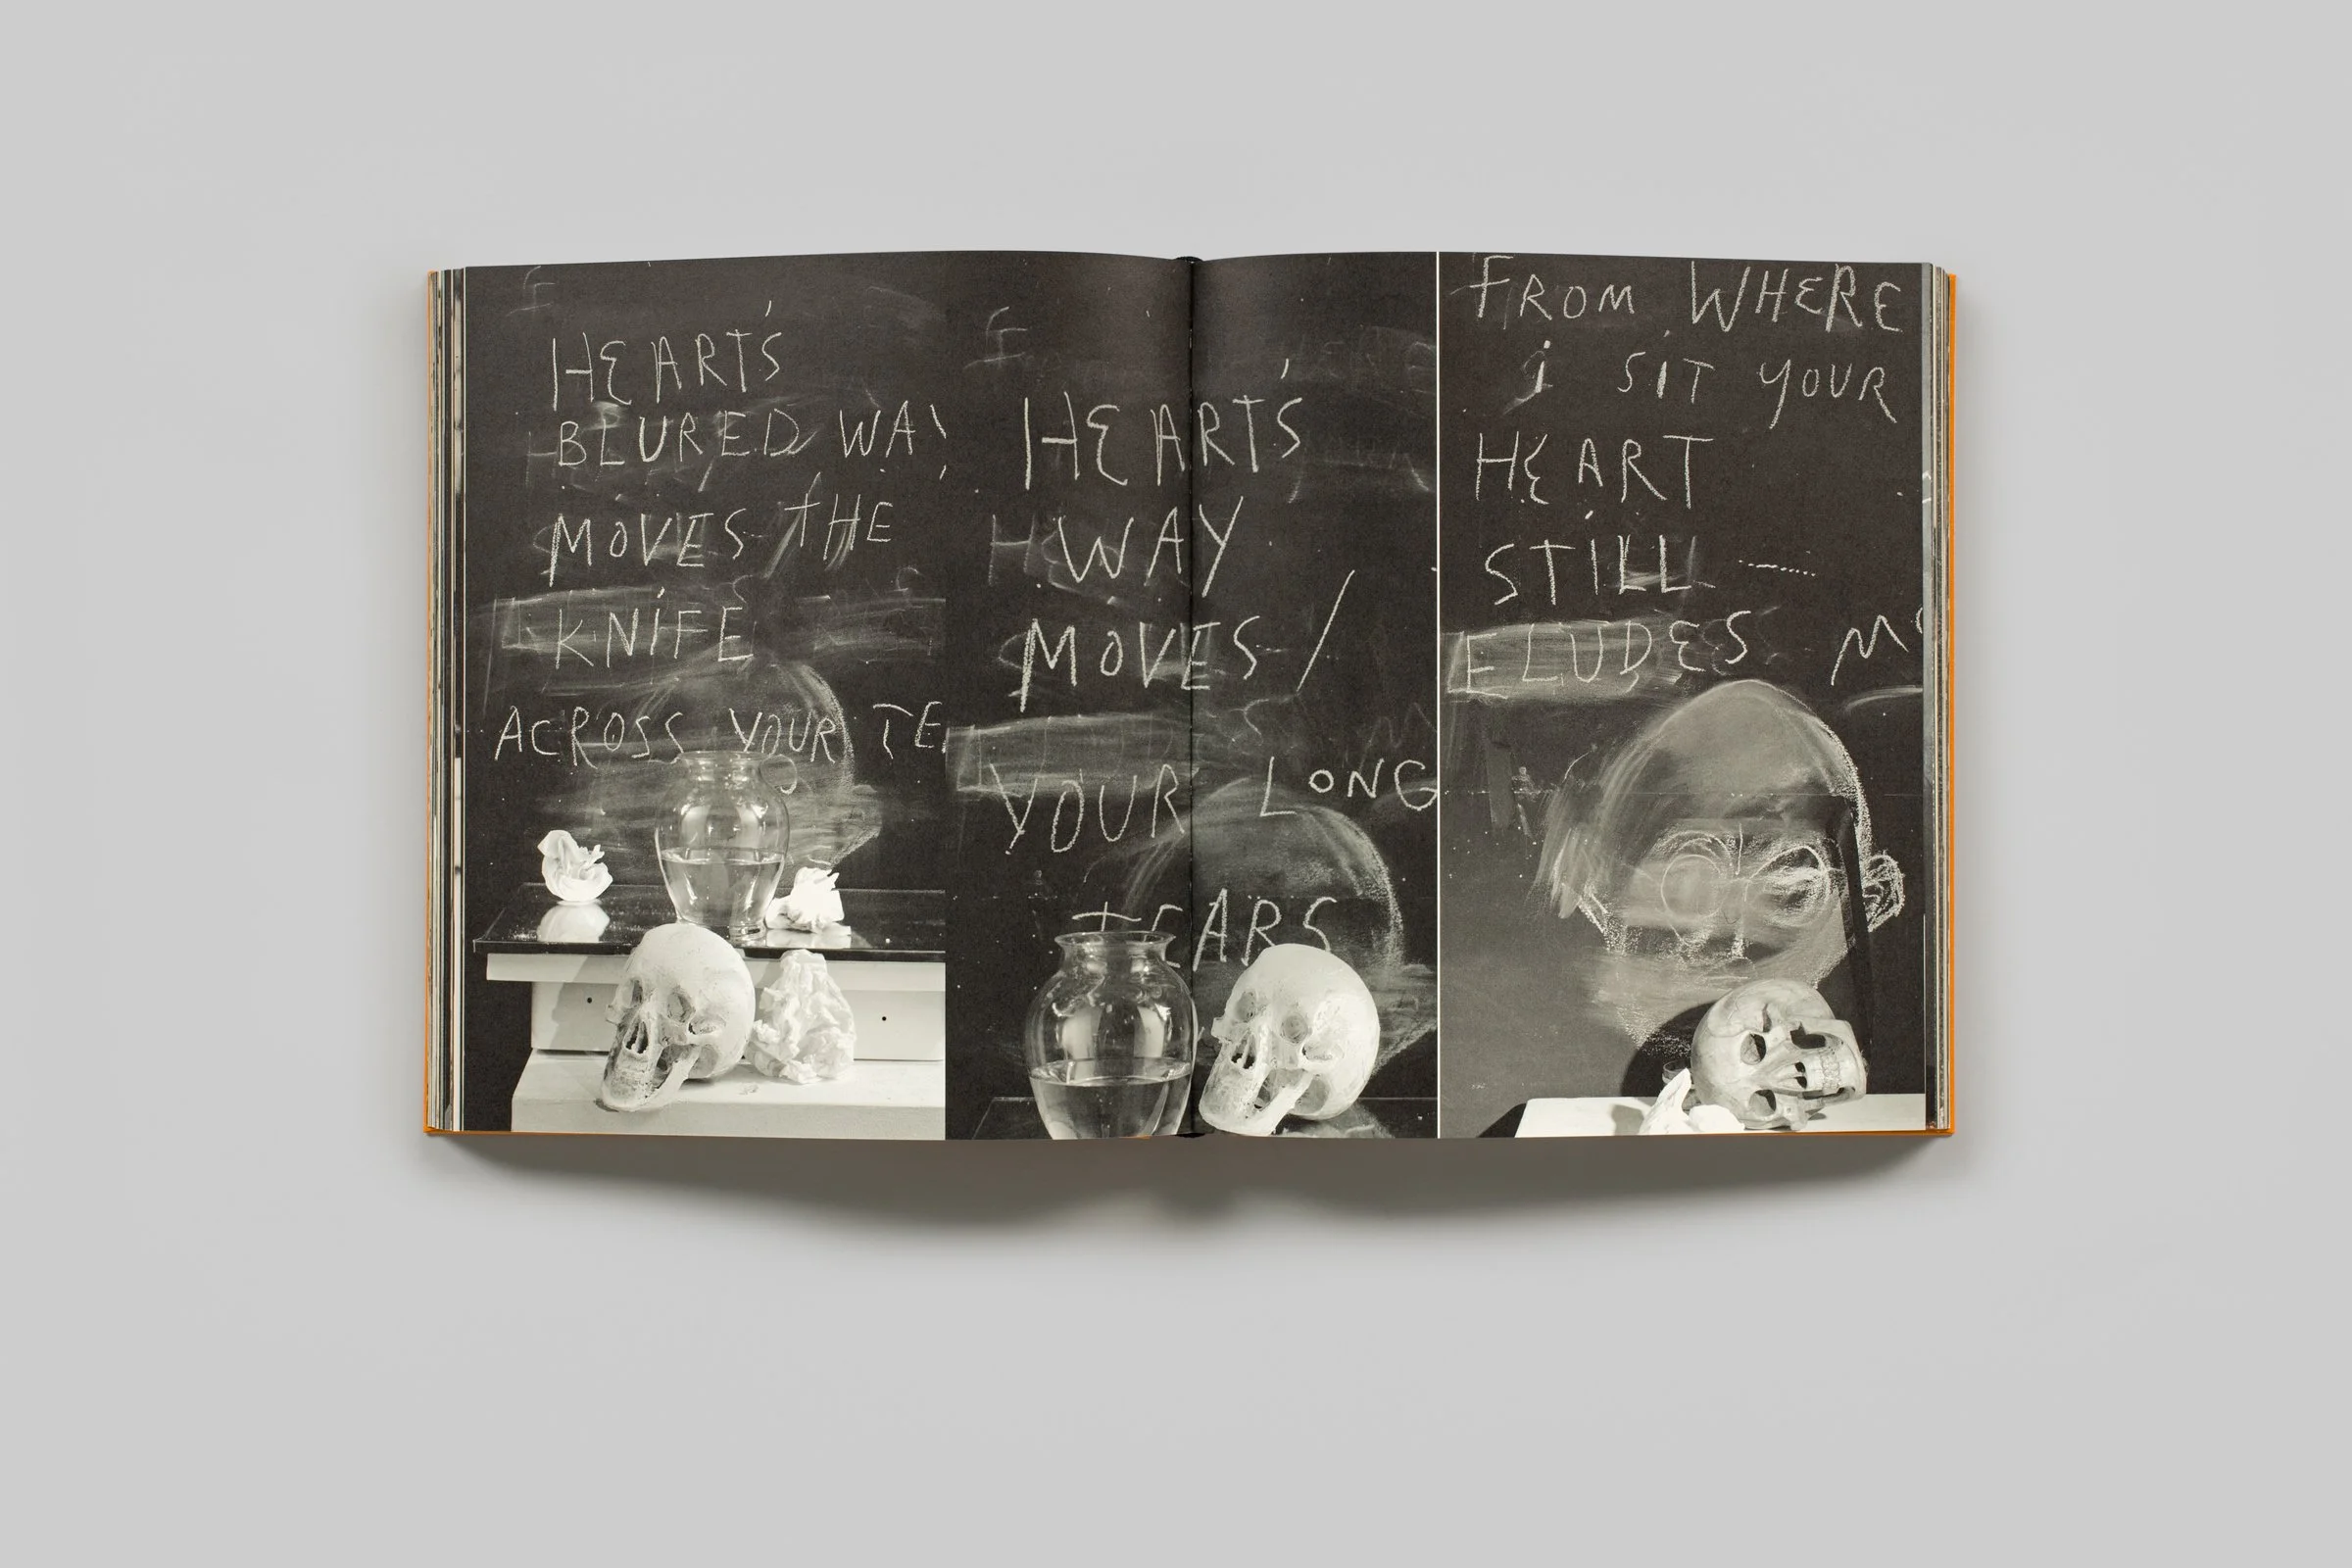 HEART'S
BLURED WAY
MOVES THE
KNIFE
ACROSS YOUR TE
HEART'S
WAY
MOVES /
YOUR LONG
tEARS
FROM WHERE
i SIT YOUR
HEART
STILL
ELUDES